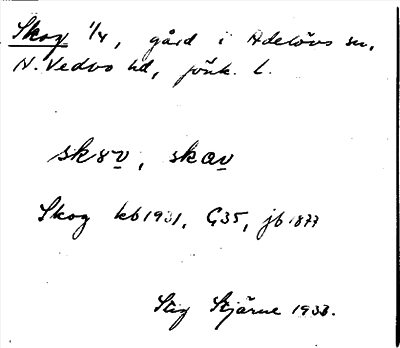 Skog 1/4, gård i Adelövs sn,
N. Vedbo hd, Jönk. l.
skov, skav
Skog kb 1931, G35, jb 1877
Stig Stjärne 1933.